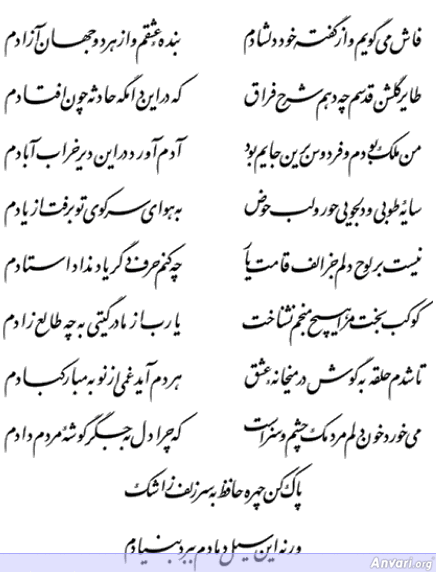 فاش می گویم و از گفته خود دلشادم بنده عشقم و از هر دو جهان آزادم
طایر گلشن قدسم چه دهم شرح فراق که در این دامگه حادثه چون افتادم
من ملک بودم و فردوس برین جایم بود آدم آورد در این دیر خراب آبادم
سایهٔ طوبی و دلجویی حور و لب حوض به هوای سر کوی تو برفت از یادم
نیست بر لوح دلم جز الف قامت یار چه کنم حرف دگر یاد نداد استادم
کوکب بخت مرا هیچ منجم نشناخت یا رب از مادر گیتی به چه طالع زادم
تا شدم حلقه به گوش در میخانه عشق هر دم آید غمی از نو به مبارکبادم
می خورد خون دلم مردمک چشم و سزاست که چرا دل به جگر گوشهٔ مردم دادم
پاک کن چهره حافظ به سر زلف ز اشک
ور نه این سیل دمادم ببرد بنیادم
Anvari.org